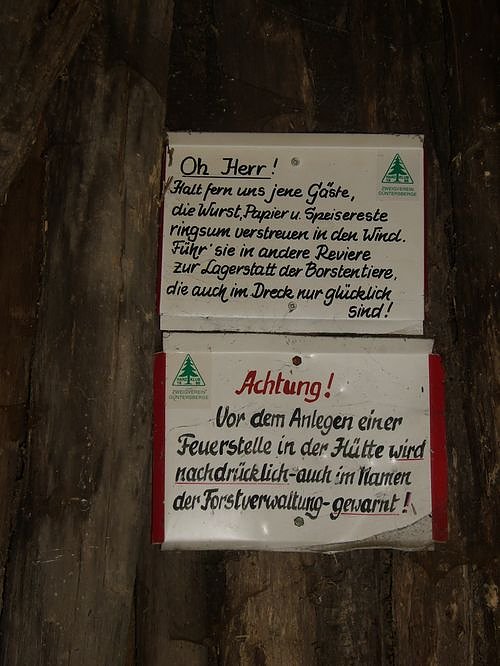 Oh Herr!
Halt fern uns jene Gäste,
die Wurst, Papier u. Speisereste
ringsum verstreuen in den Wind.
Führ' sie in andere Reviere
zur Lagerstatt der Borstentiere,
die auch im Dreck nur glücklich
sind!
ZWEIGVEREIN
GÜNTERSBERGE
ZWEIGVEREIN
GÜNTERSBERGE
Achtung!
Vor dem Anlegen einer
Feuerstelle in der Hütte wird
nachdrücklich-auch im Namen
der Forstverwaltung-gewarnt!